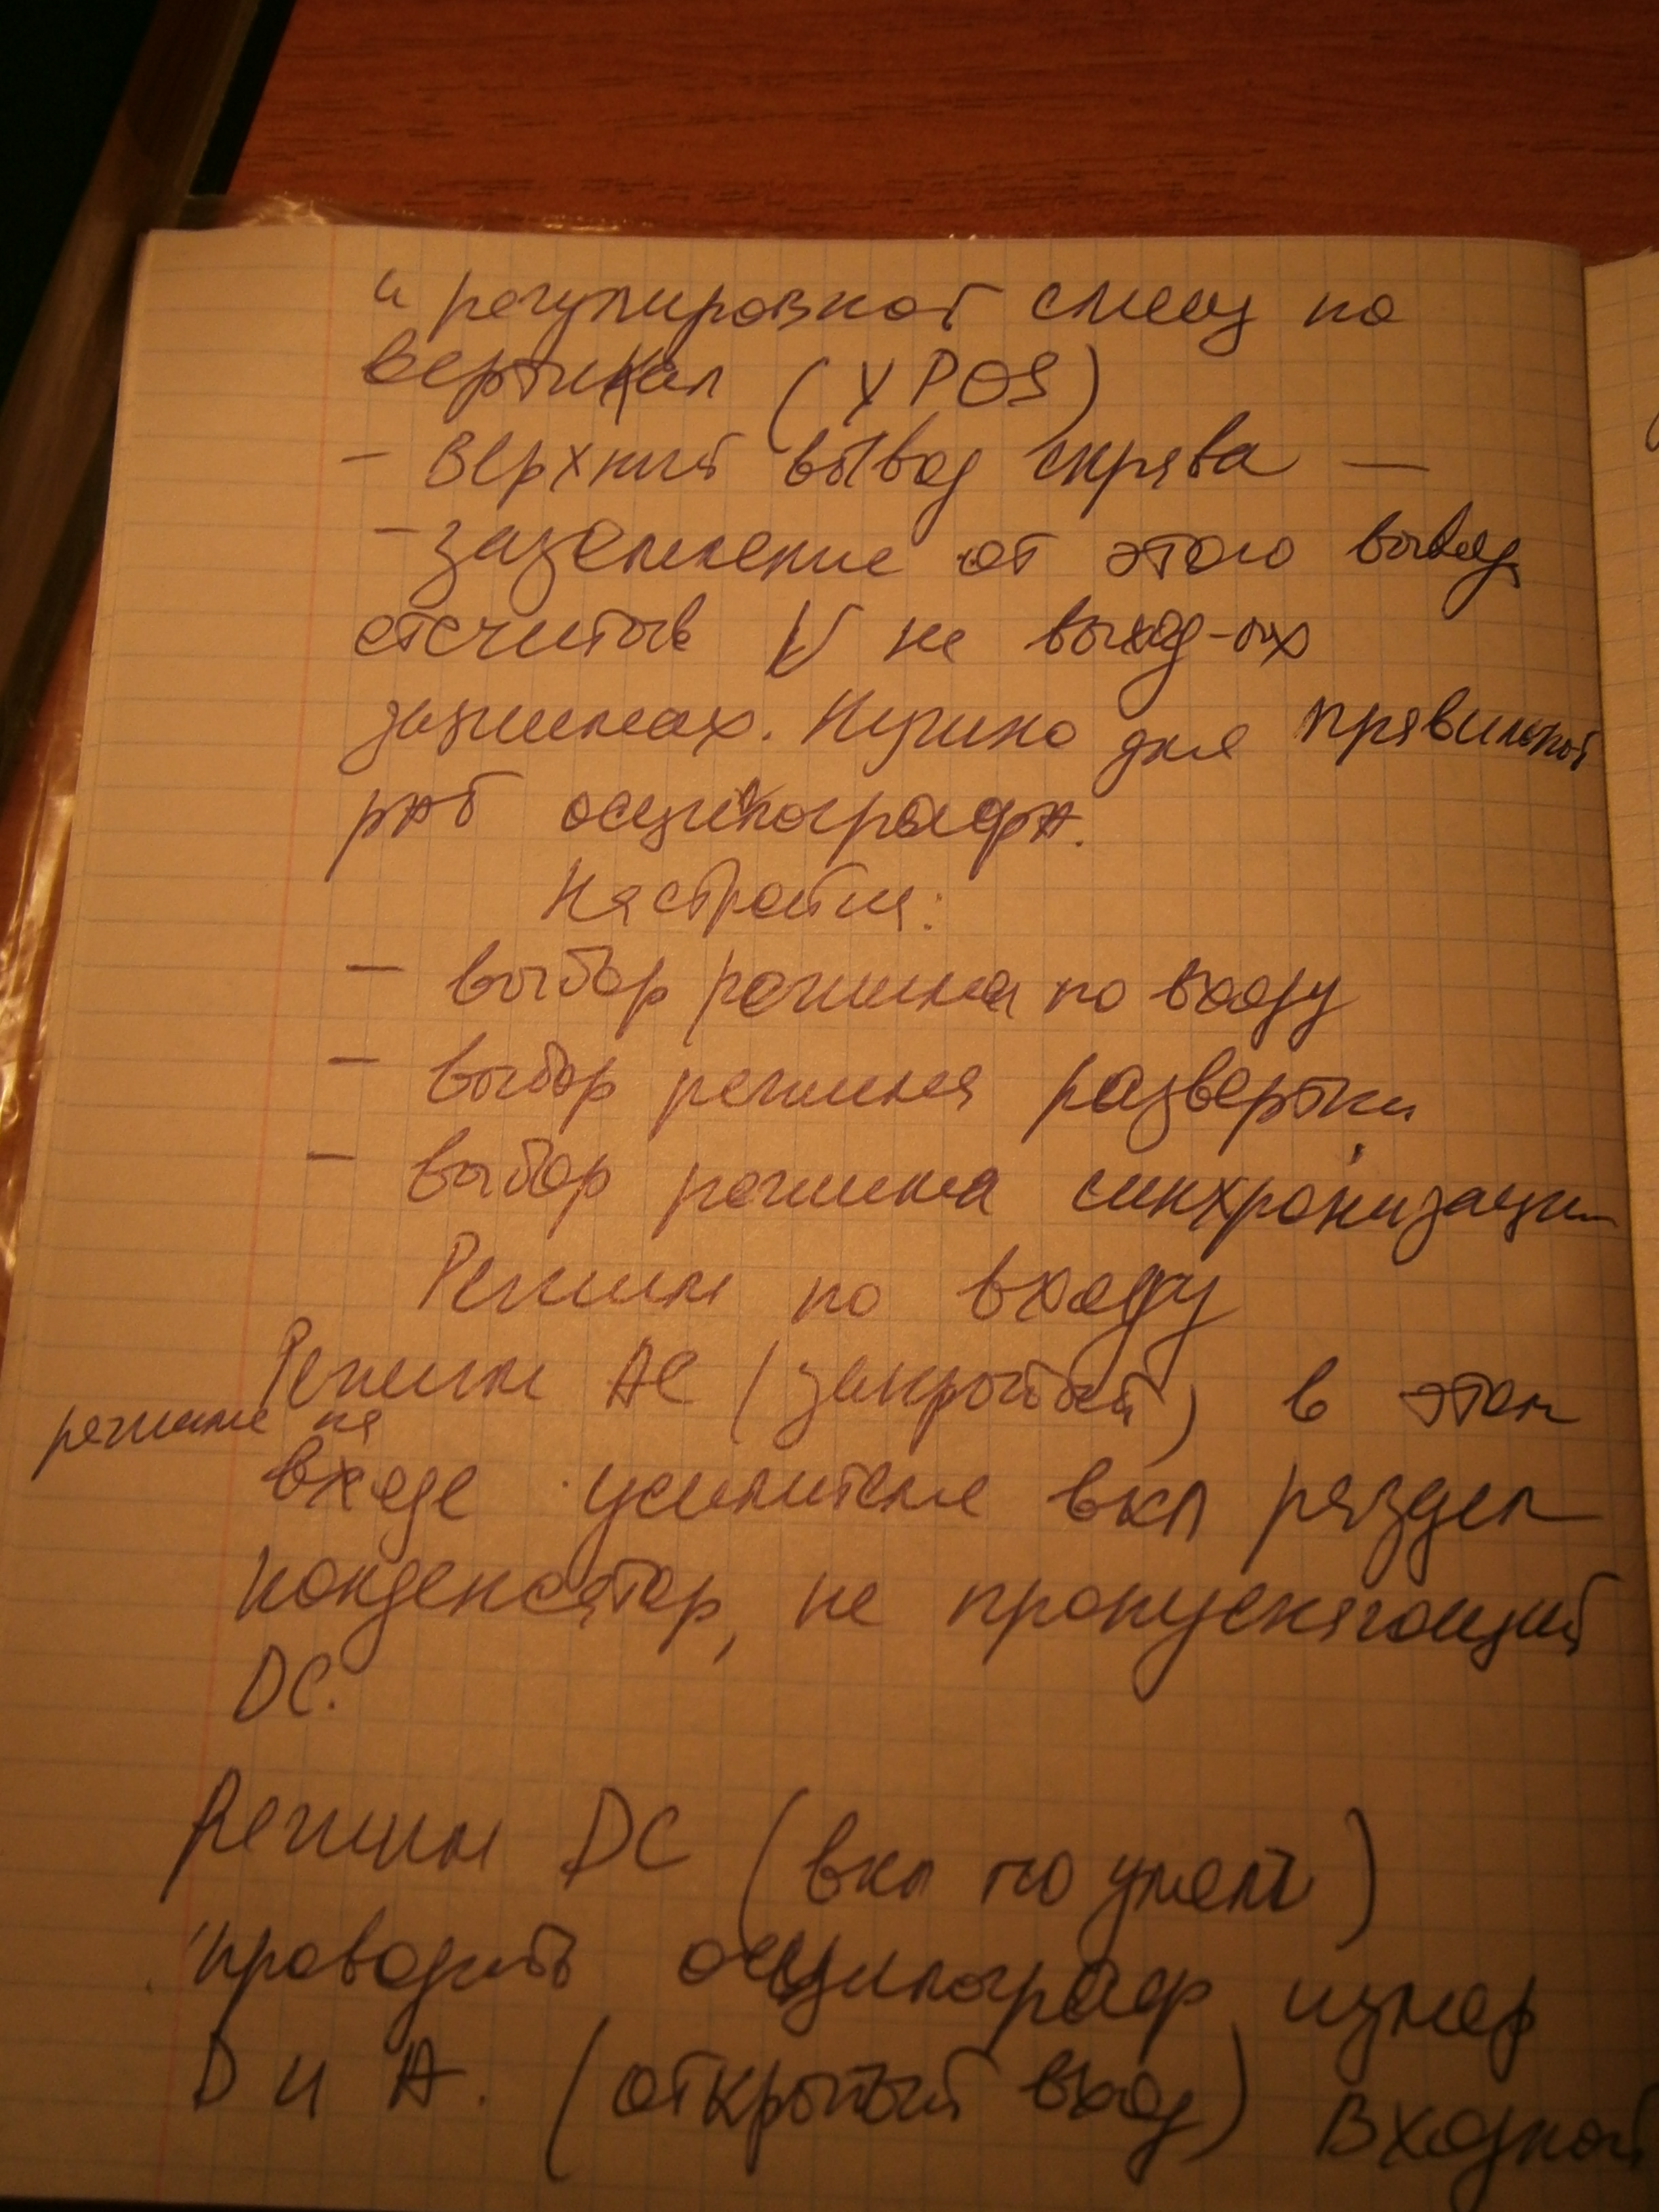 и регулировкой смещ по
вертикал (Y POS)
- Верхний вывод справа —
- заземление от этого вывод
отсчитыв V на выход-ых
зажимах. Нужно для правильной
раб осцилографа.
Настройки:
- выбор режима по входу
- выбор режима развертки
- выбор режима синхронизации
Режим по входу
Режим AC (закрытый) в этом
режиме на
входе усилителя вкл раздел
конденсатор, не пропускающий
DC.
Режим DC (вкл по умолч)
проводить осцилограф измер
D и A. (открытый вход) Входной